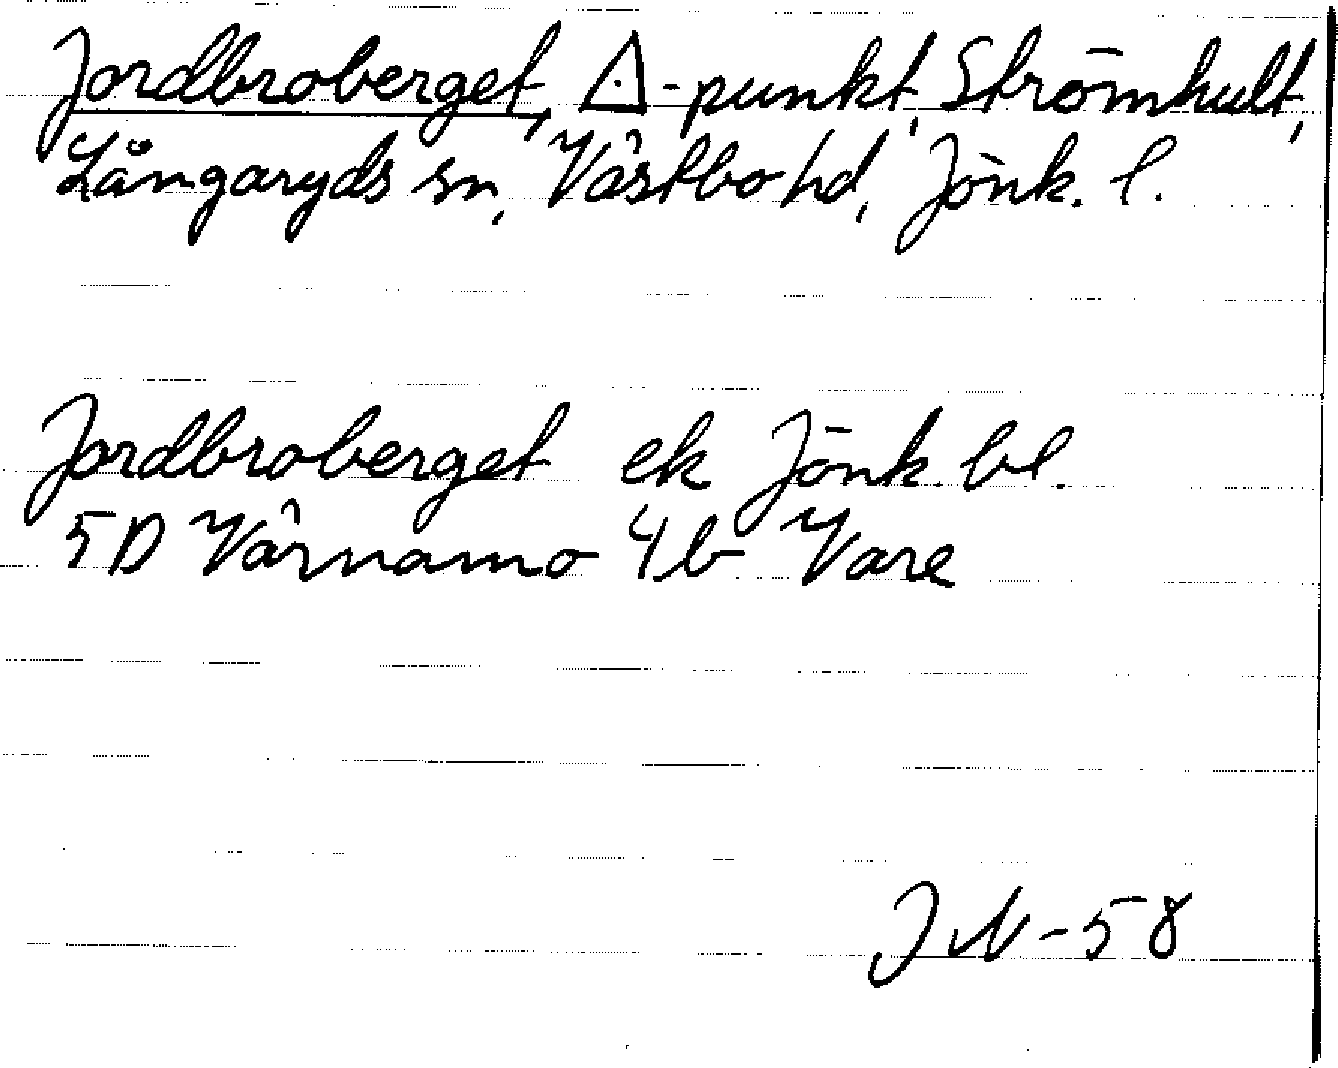 Jordbroberget, △-punkt, Strömhult,
Långaryds sn, Västbo hd, Jönk. l.
Jordbroberget ek Jönk. bl.
5D Värnamo 4b Vare
JN-58